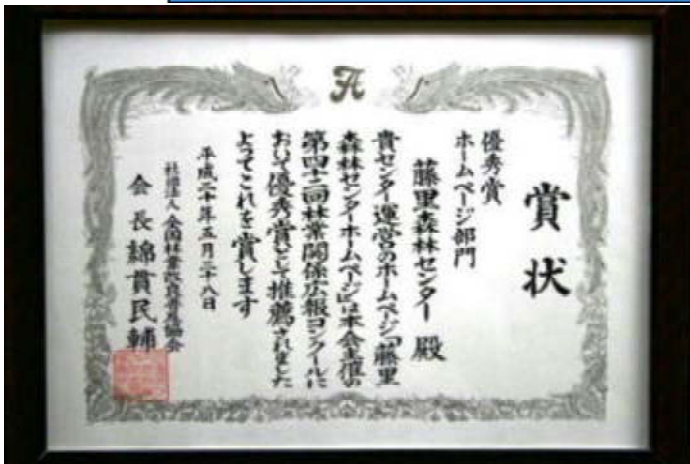 賞状
優秀賞
ホームページ部門
藤里森林センター 殿
貴センター運営のホームページ「藤里
森林センターホームページ」は本会主催の
第四十二回林業関係広報コンクールに
おいて優秀賞として推薦されました
よってこれを賞します
平成二十年五月二十八日
社団法人 全国林業改良普及協会
会長 綿貫民輔